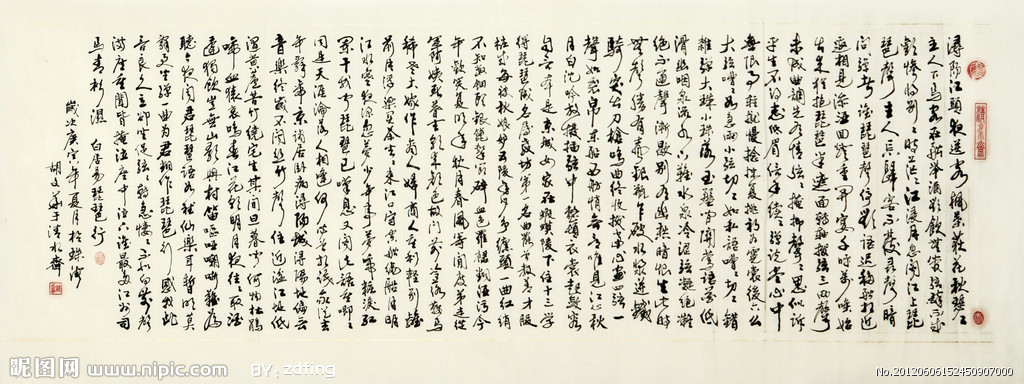 潯陽江頭夜送客楓葉荻花秋瑟〻
主人下馬客在船舉酒欲飲無管絃醉不成
歡慘將別〻時茫〻江浸月忽聞江上琵
琶聲主人忘歸客不發尋聲暗
問彈者誰琵琶聲停欲語遲移船相近
邀相見添酒回燈重開宴千呼萬喚始
出來猶抱琵琶半遮面轉軸撥絃三兩聲
未成曲調先有情絃〻掩抑聲〻思似訴
平生不得志低眉信手續〻彈說盡心中
無限事輕攏慢撚抹復挑初為霓裳後六么
大絃嘈〻如急雨小絃切〻如私語嘈〻切〻錯
雜彈大珠小珠落玉盤間關鶯語花底
滑幽咽泉流水下灘水泉冷澀絃凝絕凝
絕不通聲漸歇別有幽愁暗恨生此時
無聲勝有聲銀瓶乍破水漿迸鐵
騎突出刀槍鳴曲終收撥當心畫四絃一
聲如裂帛東船西舫悄無言唯見江心秋
月白沉吟放撥插絃中整頓衣裳起斂容
自言本是京城女家在蝦蟆陵下住十三學
得琵琶成名屬教坊第一部曲罷曾教善才服
妝成每被秋娘妒五陵年少爭纏頭一曲紅綃
不知數鈿頭銀篦擊節碎血色羅裙翻酒污今
年歡笑復明年秋月春風等閒度弟走從
軍阿姨死暮去朝來顏色故門前冷落鞍馬
稀老大嫁作商人婦商人重利輕別離
前月浮梁買茶去〻來江口守空船繞船月明
江水寒夜深忽夢少年事夢啼妝淚紅
闌干我聞琵琶已嘆息又聞此語重唧〻
同是天涯淪落人相逢何必曾相識我從去
年辭帝京謫居臥病潯陽城潯陽地僻無
音樂終歲不聞絲竹聲住近湓江地低
濕黃蘆苦竹繞宅生其間旦暮聞何物杜鵑
啼血猿哀鳴春江花朝秋月夜往〻取酒
還獨飲豈無山歌與村笛嘔啞嘲哳難為
聽今夜聞君琵琶語如聽仙樂耳暫明莫
辭更坐彈一曲為君翻作琵琶行感我此
言良久立卻坐促絃〻轉急悽〻不似向前聲
滿座重聞皆掩泣座中泣下誰最多江州司
馬青衫濕 白居易琵琶行
歲次庚寅年夏月於珠海
胡文于清水齋
昵图网 www.nipic.com BY: zdfing
No.20120606152450907000